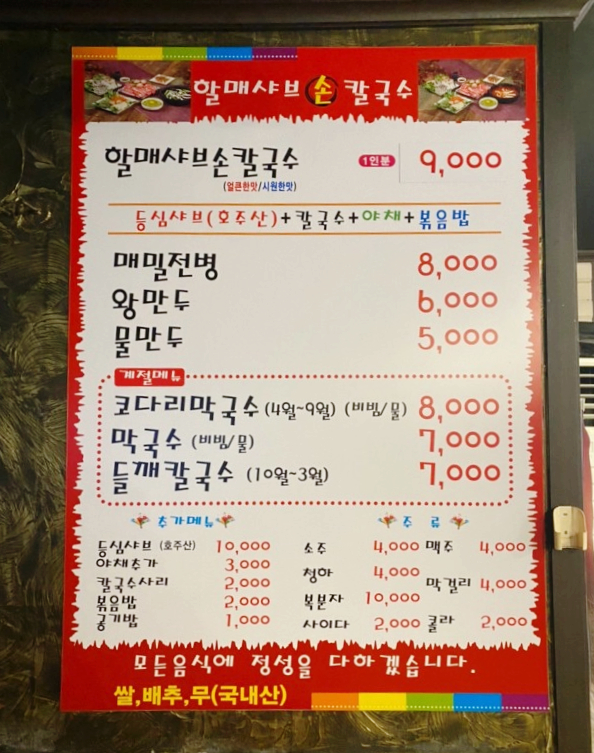 할매샤브 손 칼국수
할매샤브손칼국수 1인분 9,000
(얼큰한맛/시원한맛)
등심샤브(호주산)+칼국수+야채+볶음밥
매밀전병 8,000
왕만두 6,000
물만두 5,000
계절메뉴
코다리막국수 (4월~9월) (비빔/물) 8,000
막국수 (비빔/물) 7,000
들깨칼국수 (10월~3월) 7,000
추가메뉴
등심샤브 (호주산) 10,000
야채추가 3,000
칼국수사리 2,000
볶음밥 2,000
공기밥 1,000
주류
소주 4,000 맥주 4,000
청하 4,000 막걸리 4,000
복분자 10,000
사이다 2,000 콜라 2,000
모든음식에 정성을 다하겠습니다.
쌀,배추,무(국내산)